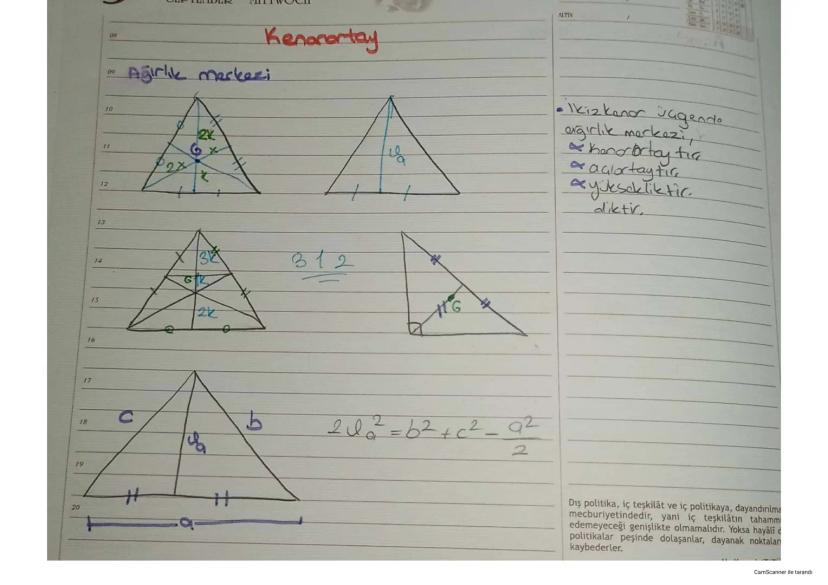 SEPTEMBER MITTWOCH
ALTIN
08
Kenarortay
09
Ağırlık merkezi
10
11
12
2k
G
x
2x
k
Va
• İkizkenar üçgende
ağırlık merkezi,
∝ kenarortaytır
∝ açıortaytır
∝ yüksekliktir.
diktir.
13
14
15
16
3k
G
k
2k
3 1 2
G
17
18
19
20
c
b
Va
a
2Va² = b² + c² - a²/2
Dış politika, iç teşkilât ve iç politikaya, dayandırılma
mecburiyetindedir, yani iç teşkilâtın tahamm
edemeyeceği genişlikte olmamalıdır. Yoksa hayâlî
politikalar peşinde dolaşanlar, dayanak noktalar
kaybederler.
CamScanner ile tarandı